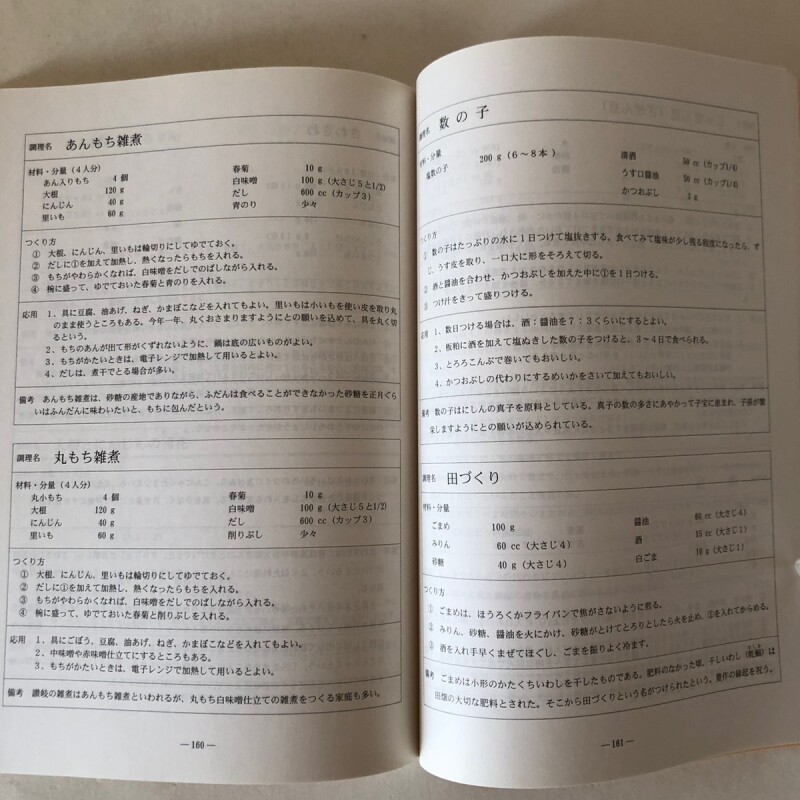 調理名 あんもち雑煮
材料・分量（4人分）
あん入りもち 4 個 春菊 10 g
大根 120 g 白味噌 100 g（大さじ5と1/2）
にんじん 40 g だし 600 cc（カップ3）
里いも 60 g 青のり 少々
つくり方
① 大根、にんじん、里いもは輪切りにしてゆでておく。
② だしに①を加えて加熱し、熱くなったらもちを入れる。
③ もちがやわらかくなれば、白味噌をだしでのばしながら入れる。
④ 椀に盛って、ゆでておいた春菊と青のりを入れる。
応用 1、具に豆腐、油あげ、ねぎ、かまぼこなどを入れてもよい。里いもは小いもを使い皮を取り丸
のまま使うところもある。今年一年、丸くおさまりますようにとの願いを込めて、具を丸く切
るという。
2、もちのあんが出て形がくずれないように、鍋は底の広いものがよい。
3、もちがかたいときは、電子レンジで加熱して用いるとよい。
4、だしは、煮干でとる場合が多い。
備考 あんもち雑煮は、砂糖の産地でありながら、ふだんは食べることができなかった砂糖を正月ぐら
いはふんだんに味わいたいと、もちに包んだという。
調理名 丸もち雑煮
材料・分量（4人分）
丸小もち 4 個 春菊 10 g
大根 120 g 白味噌 100 g（大さじ5と1/2）
にんじん 40 g だし 600 cc（カップ3）
里いも 60 g 削りぶし 少々
つくり方
① 大根、にんじん、里いもは輪切りにしてゆでておく。
② だしに①を加えて加熱し、熱くなったらもちを入れる。
③ もちがやわらかくなれば、白味噌をだしでのばしながら入れる。
④ 椀に盛って、ゆでておいた春菊と削りぶしを入れる。
応用 1、具にごぼう、豆腐、油あげ、ねぎ、かまぼこなどを入れてもよい。
2、中味噌や赤味噌仕立てにするところもある。
3、もちがかたいときは、電子レンジで加熱して用いるとよい。
備考 讃岐の雑煮はあんもち雑煮といわれるが、丸もち白味噌仕立ての雑煮をつくる家庭も多い。
―160―
調理名 数の子
材料・分量
塩数の子 200 g（6～8本） 清酒 50 cc（カップ1/4）
うす口醤油 50 cc（カップ1/4）
かつおぶし 3 g
つくり方
① 数の子はたっぷりの水に1日つけて塩抜きする。食べてみて塩味が少し残る程度になったら、す
じ、うす皮を取り、一口大に形をそろえて切る。
② 酒と醤油を合わせ、かつおぶしを加えた中に①を1日つける。
③ つけ汁をきって盛りつける。
応用 1、数日つける場合は、酒：醤油を7：3くらいにするとよい。
2、板粕に酒を加えて塩ぬきした数の子をつけると、3～4日で食べられる。
3、とろろこんぶで巻いてもおいしい。
4、かつおぶしの代わりにするめいかをさいて加えてもおいしい。
備考 数の子はにしんの真子を原料としている。真子の数の多さにあやかって子宝に恵まれ、子孫が繁
栄しますようにとの願いが込められている。
調理名 田づくり
材料・分量
ごまめ 100 g 醤油 60 cc（大さじ4）
みりん 60 cc（大さじ4） 酒 15 cc（大さじ1）
砂糖 40 g（大さじ4） 白ごま 10 g（大さじ1）
つくり方
① ごまめは、ほうろくかフライパンで焦がさないように煎る。
② みりん、砂糖、醤油を火にかけ、砂糖がとけてとろりとしたら火を止め、①を入れてからめる。
③ 酒を入れ手早くまぜてほぐし、ごまを振りよく冷ます。
備考 ごまめは小形のかたくちいわしを干したものである。肥料のなかった頃、干しいわし（乾鰯）は
田畑の大切な肥料とされた。そこから田づくりという名がつけられたという。豊作の縁起を祝う。
―161―